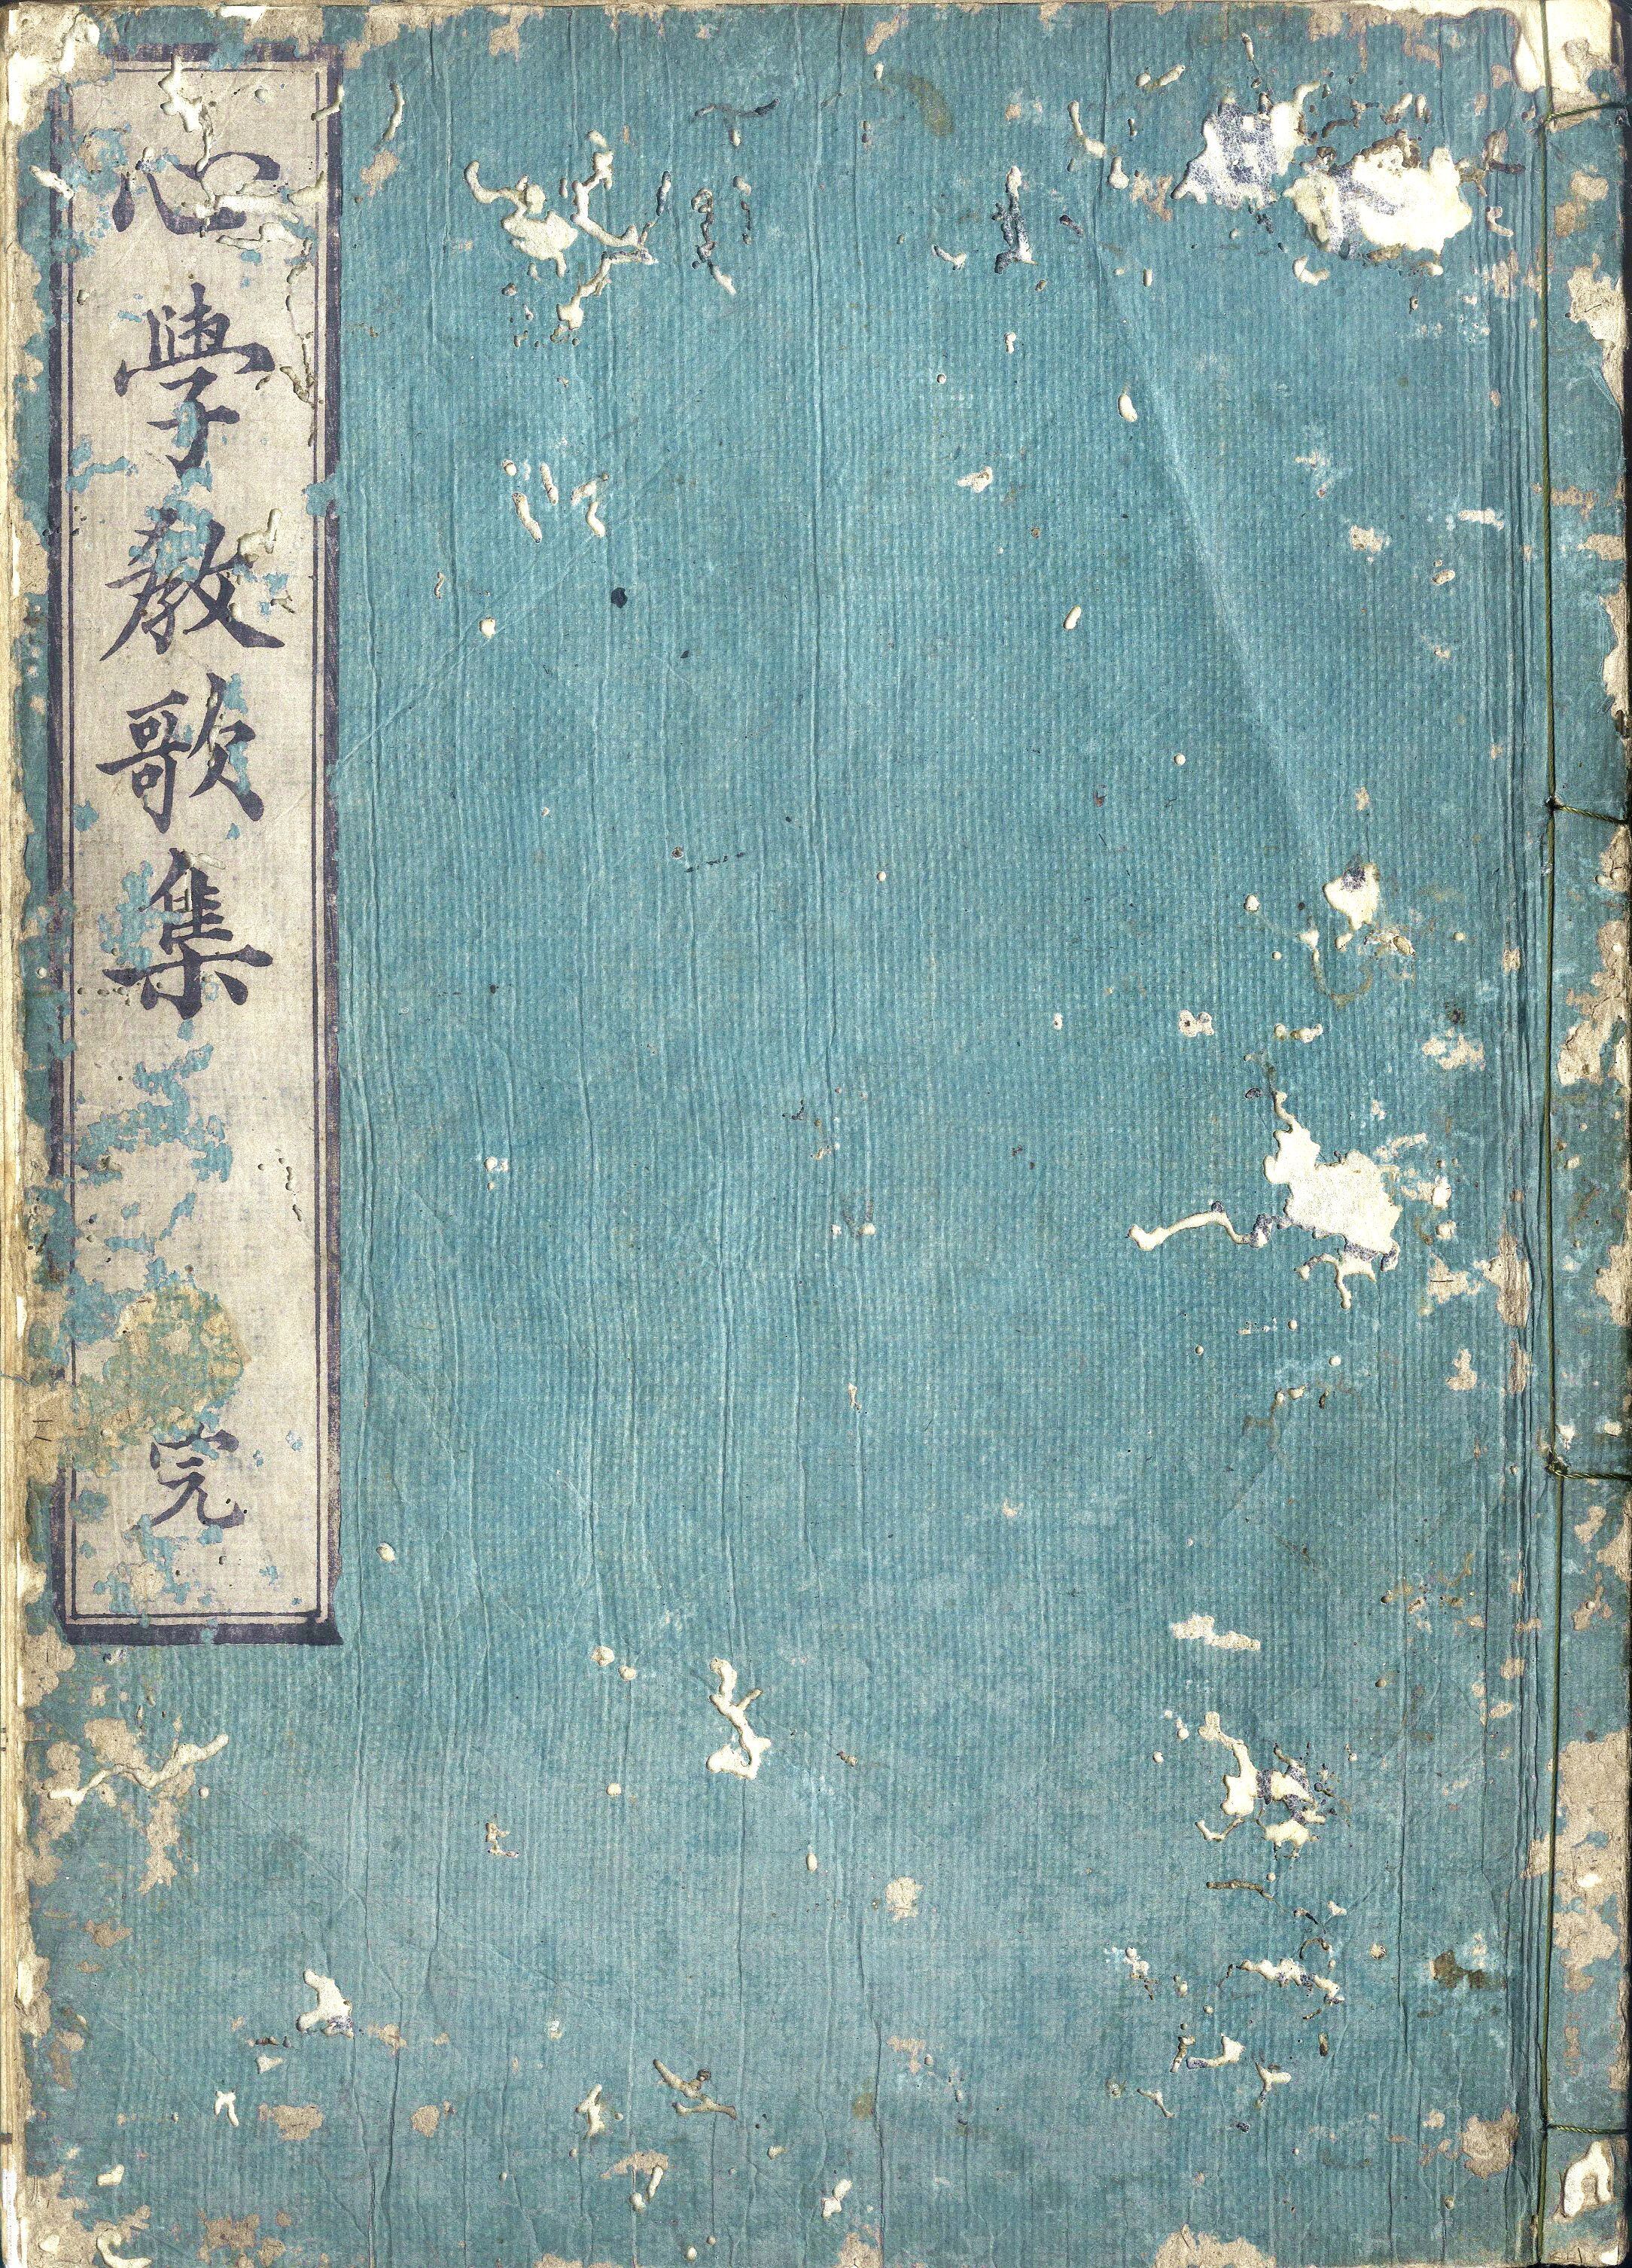 心學教歌集 完